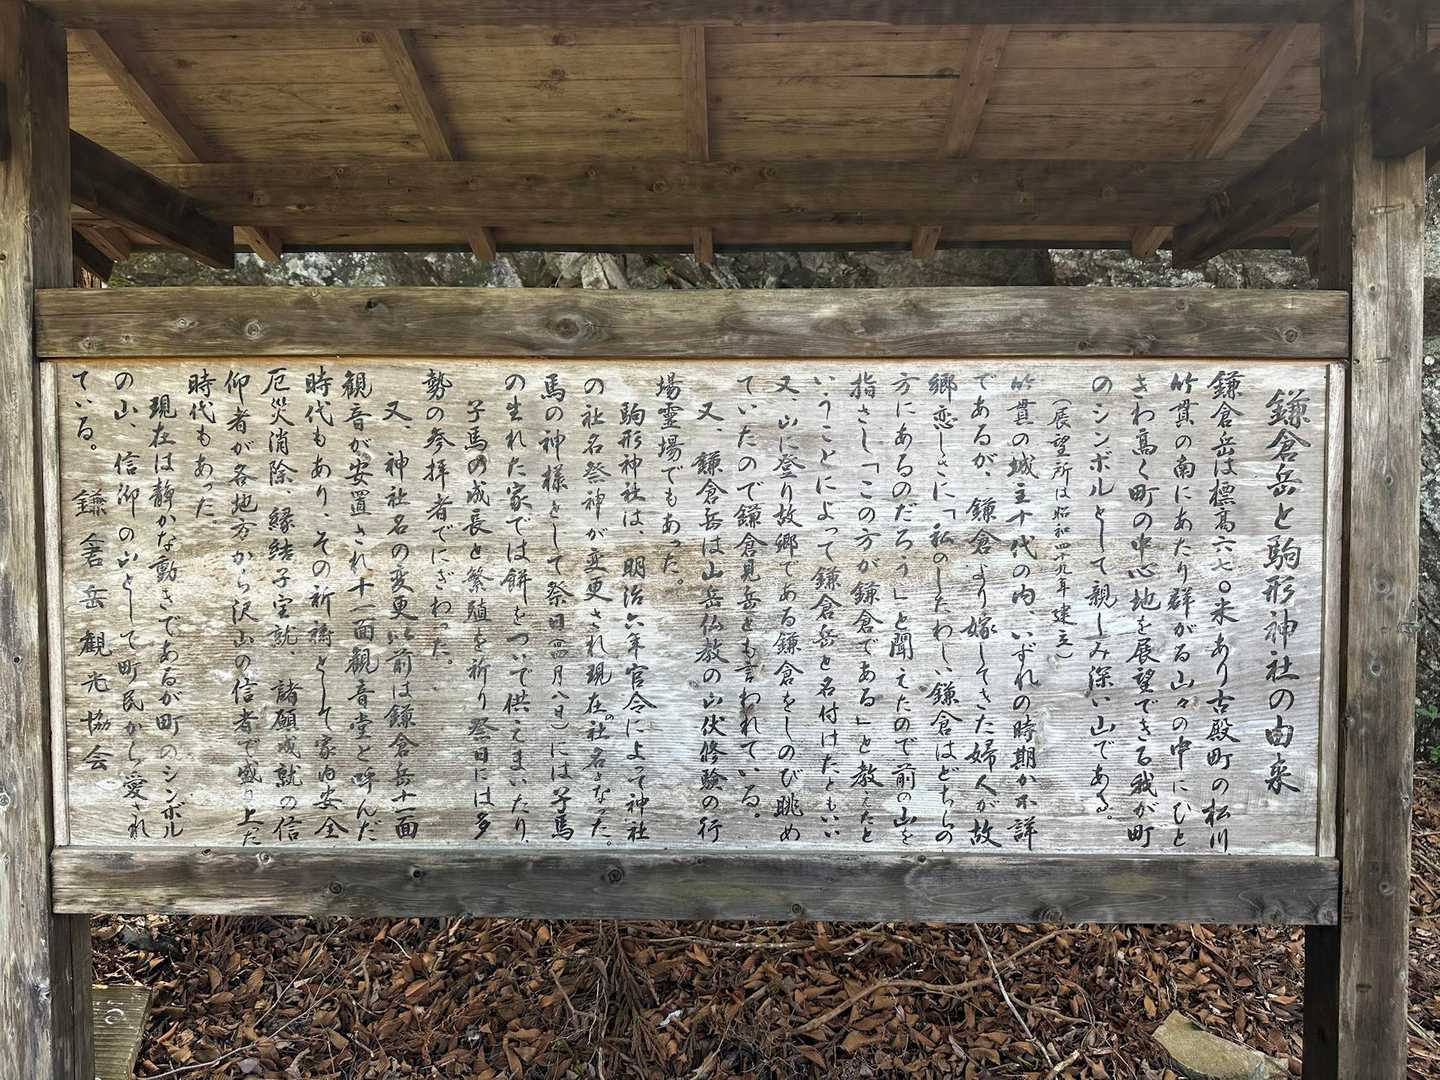 鎌倉岳と駒形神社の由来
鎌倉岳は標高六七〇米あり古殿町の松川、
竹貫の南にあたり群がる山々の中にひと
きわ高く町の中心地を展望できる我が町
のシンボルとして親しみ深い山である。
(展望所は昭和四九年建立)
竹貫の城主十代の内、いずれの時期か不詳
であるが、鎌倉より嫁してきた婦人が故
郷恋しさに「私のしたわしい鎌倉はどちらの
方にあるのだろう」と聞えたので前の山を
指さし「この方が鎌倉である」と教えたと
いうことによって鎌倉岳と名付けたともいい
又、山に登り故郷である鎌倉をしのび眺め
ていたので鎌倉見岳とも言われている。
又、鎌倉岳は山岳仏教の山伏修験の行
場霊場でもあった。
駒形神社は、明治六年官令によって神社
の社名祭神が変更され現在の社名となった。
馬の神様として祭日(四月八日)には子馬
の生れた家では餅をついて供えまいたり、
子馬の成長と繁殖を祈り祭日には多
勢の参拝者でにぎわった。
又、神社名の変更以前は鎌倉岳十一面
観音が安置され十一面観音堂と呼んだ
時代もあり、その祈祷として家内安全
厄災消除、縁結子宝就、諸願成就の信
仰者が各地方から沢山の信者で盛り上った
時代もあった。
現在は静かな動きであるが町のシンボル
の山、信仰の山として町民から愛され
ている。 鎌倉岳観光協会